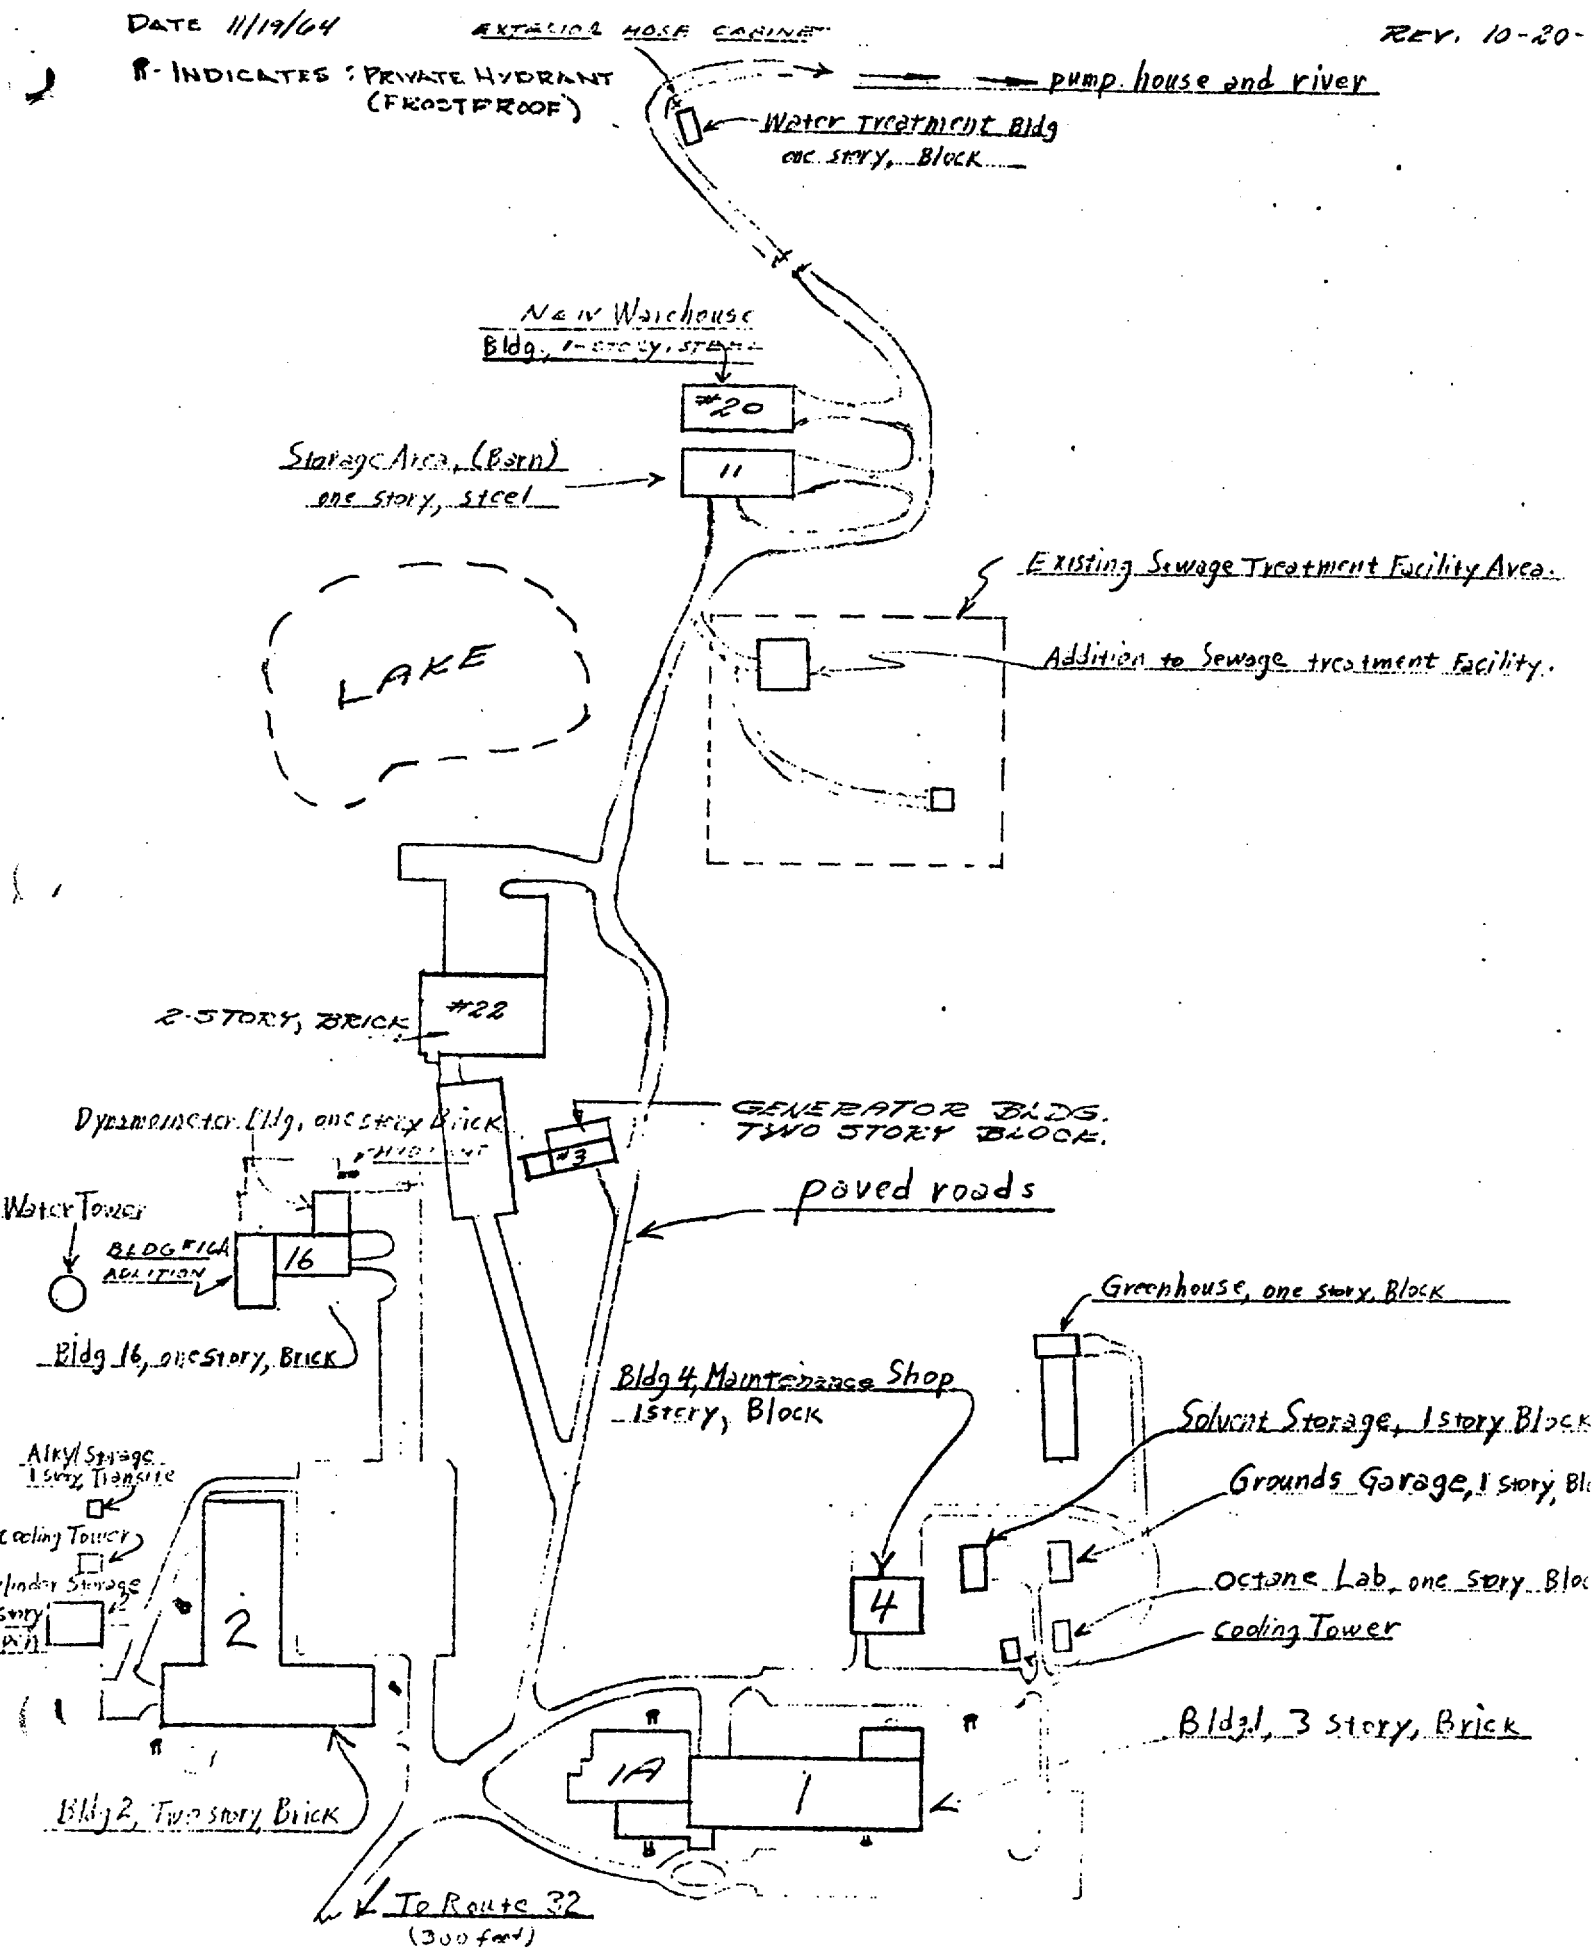 DATE 11/19/64
EXTERIOR HOSE CABINET
REV. 10-20-
INDICATES : PRIVATE HYDRANT
(FROSTPROOF)
pump house and river
Water Treatment Bldg
one story, Block
New Warehouse
Bldg., 1-STORY, STEEL
#20
Storage Area, (Barn)
one story, steel
11
Existing Sewage Treatment Facility Area.
Addition to Sewage treatment Facility.
LAKE
#22
2-STORY, BRICK
Dynamometer Bldg, one story Brick
HYDRANT
GENERATOR BLDG.
TWO STORY BLOCK.
#3
paved roads
Water Tower
BLDG #16A
ADDITION
16
Bldg 16, one story, Brick
Greenhouse, one story, Block
Bldg 4, Maintenance Shop
1 story, Block
Solvent Storage, 1 story Block
Grounds Garage, 1 story, Blo
Alkyl Storage
1 story, Transite
Cooling Tower
ylinder Storage
story
2
4
Octane Lab, one story Bloc
Cooling Tower
Bldg.1, 3 story, Brick
1A
1
Bldg 2, Two story, Brick
To Route 32
(300 feet)